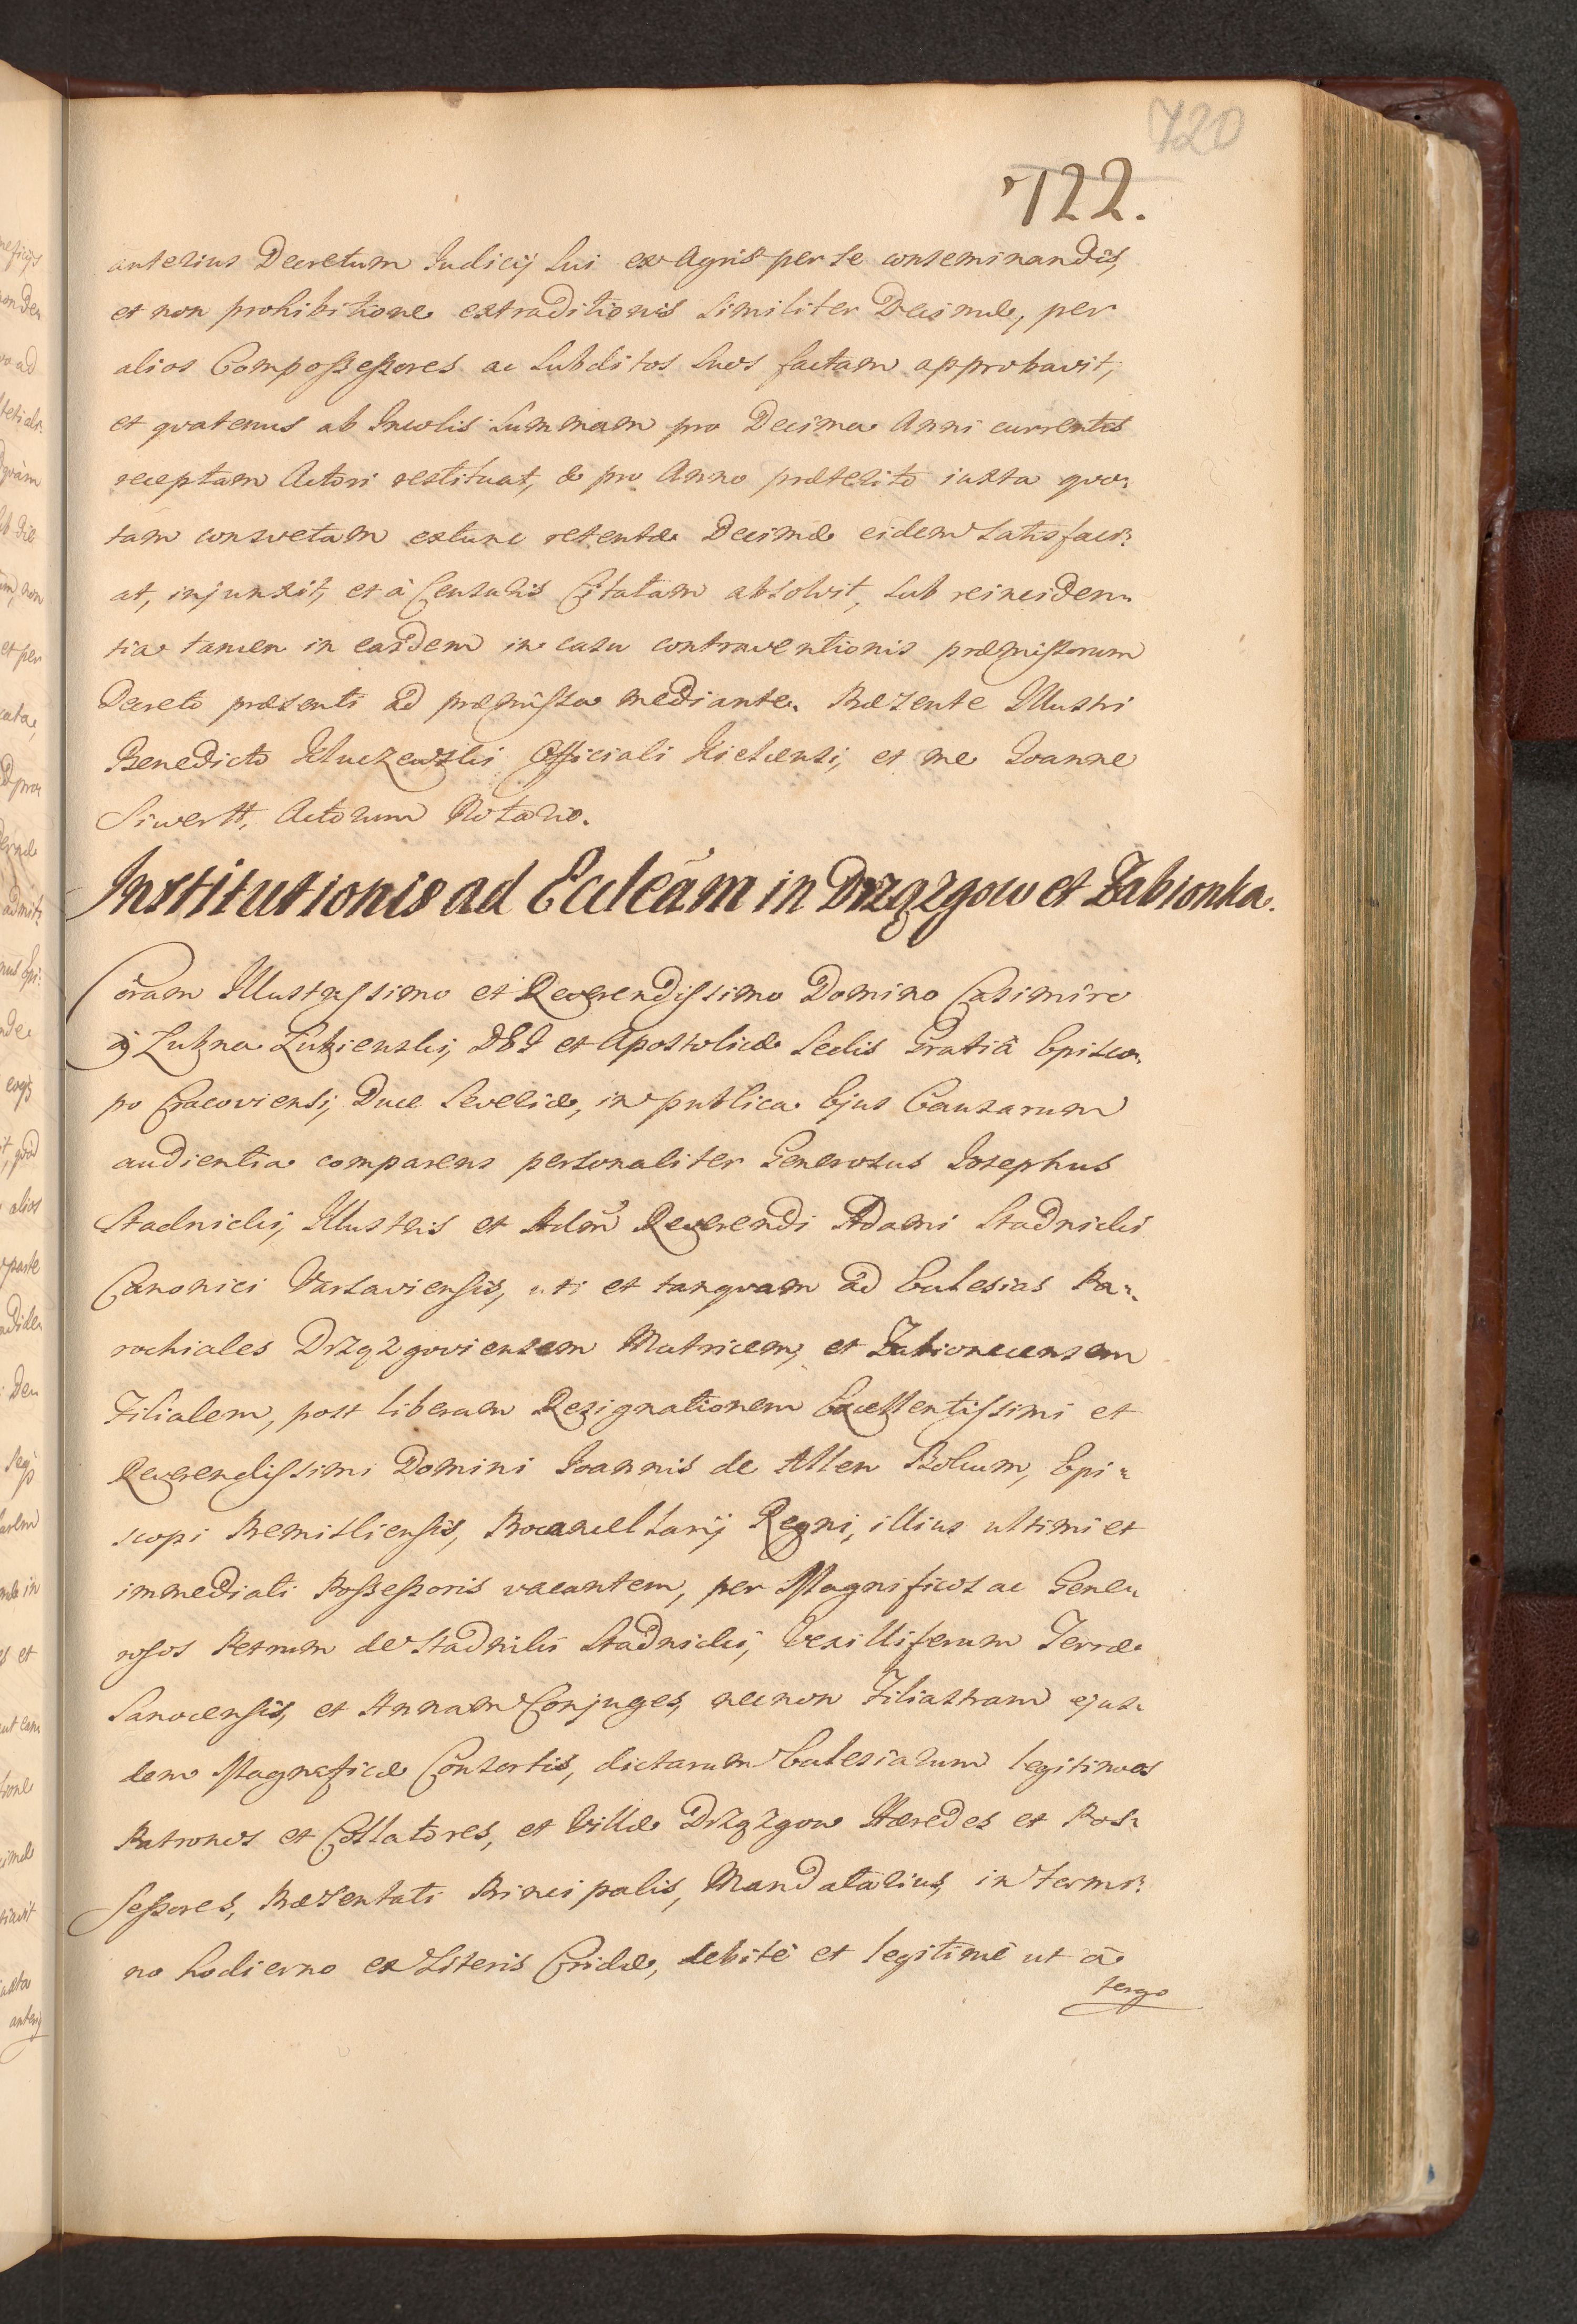 720
722.
anterius Decretum Judicij sui ex Agris per se conseminandis,
et non prohibitione extraditionis similiter Decimæ, per
alios Compossessores ac subditos suos factam approbavit,
et qvatenus ab Incolis summam pro Decima Anni currentis
receptam Actori restituat, & pro Anno præterito iuxta qvo:
tam consvetam extunc retentæ Decimæ eidem satisfaci:
at, injunxit, et à Censuris Citatam absolvit, sub reinciden:
tia tamen in easdem in casu contraventionis præmissorum
Decreto præsenti ad præmissa mediante. Præsente Illustri
Benedicto Kluczewski Officiali Kielcensi, et me Joanne
Siwertt, Actorum Notario.
Institutionis ad Eccleãm in Drzązgow et Zabionka.
Coram Illustrissimo et Reverendissimo Domino Casimiro
à Lubna Lubienski, DEI et Apostolicæ Sedis Gratiâ Episco:
po Cracoviensi, Duce Severiæ, in publica Ejus Causarum
audientia comparens personaliter Generosus Josephus
Stadnicki, Illustris et Adm̃ Reverendi Adami Stadnicki
Canonici Varsaviensis, uti et tanqvam ad Ecclesias Pa:
rochiales Drzązgoviensem Matricem, et Zabionecensem
Filialem, post liberam Resignationem Excellentissimi et
Reverendissimi Domini Joannis de Alten Bokum, Epi:
scopi Premisliensis, Procancellarij Regni, illius ultimi et
immediati Possessoris vacantem, per Magnificos ac Gene:
rosos Petrum de Stadniki Stadnicki, Vexilliferum Terræ
Sanocensis, et Annam Conjuges, necnon Filiastram ejus:
dem Magnificæ Consortis, dictarum Ecclesiarum legitimos
Patronos et Collatores, et Villæ Drzązgow Hæredes et Pos:
sessores, Præsentati Principalis, Mandatarius, in termi:
no hodierno ex Literis Cridæ, debitè et legitimè ut à
tergo